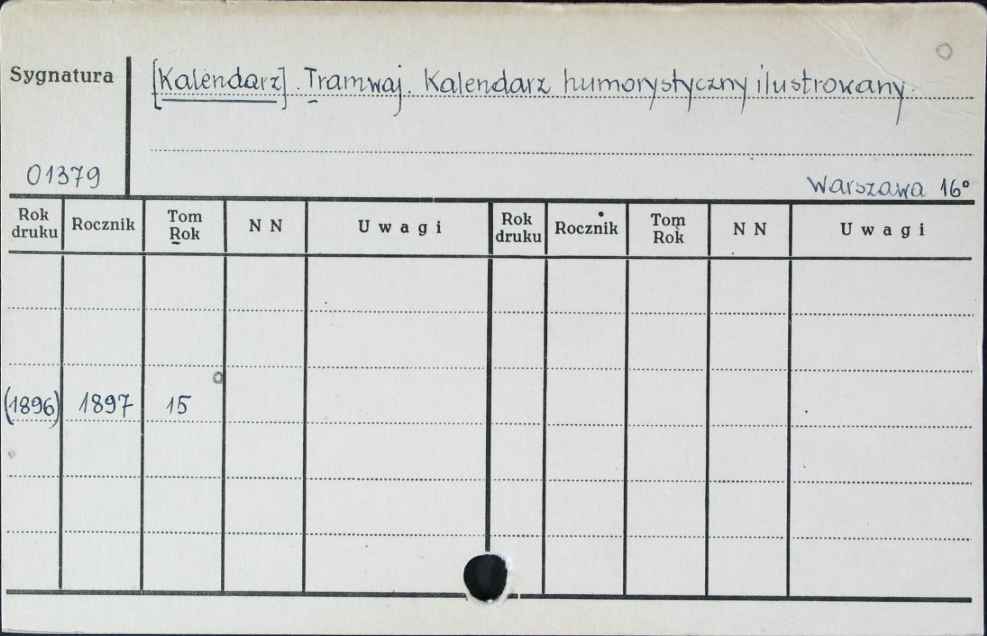 Sygnatura
[Kalendarz]. Tramwaj. Kalendarz humorystyczny ilustrowany.
01379
Warszawa 16°
Rok druku Rocznik Tom Rok N N Uwagi Rok druku Rocznik Tom Rok N N Uwagi
(1896) 1897 15